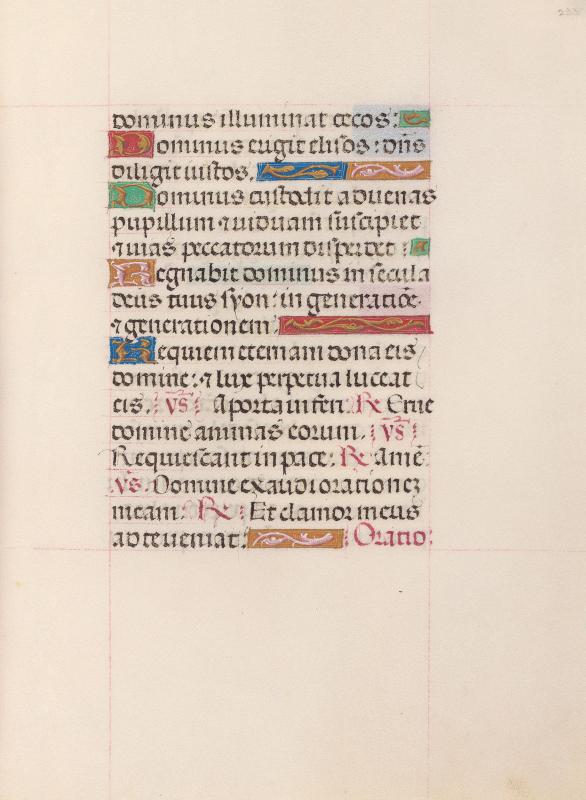 dominus illuminat cecos:
Dominus erigit elisos: dn̄s
diligit iustos.
Dominus custodit aduenas
pupillum ⁊ uiduam suscipiet
⁊ uias peccatorum disperdet:
Regnabit dominus in secula
deus tuus syon: in generatiōe
⁊ generationem.
Requiem eternam dona eis
domine: ⁊ lux perpetua luceat
eis. v̄s A porta inferi. R̷ Erue
domine animas eorum. v̄s
Requiescant in pace. R̷ Amē
v̄s. Domine exaudi orationeʒ
meam. R̷ Et clamor meus
ad te ueniat. Oratio: